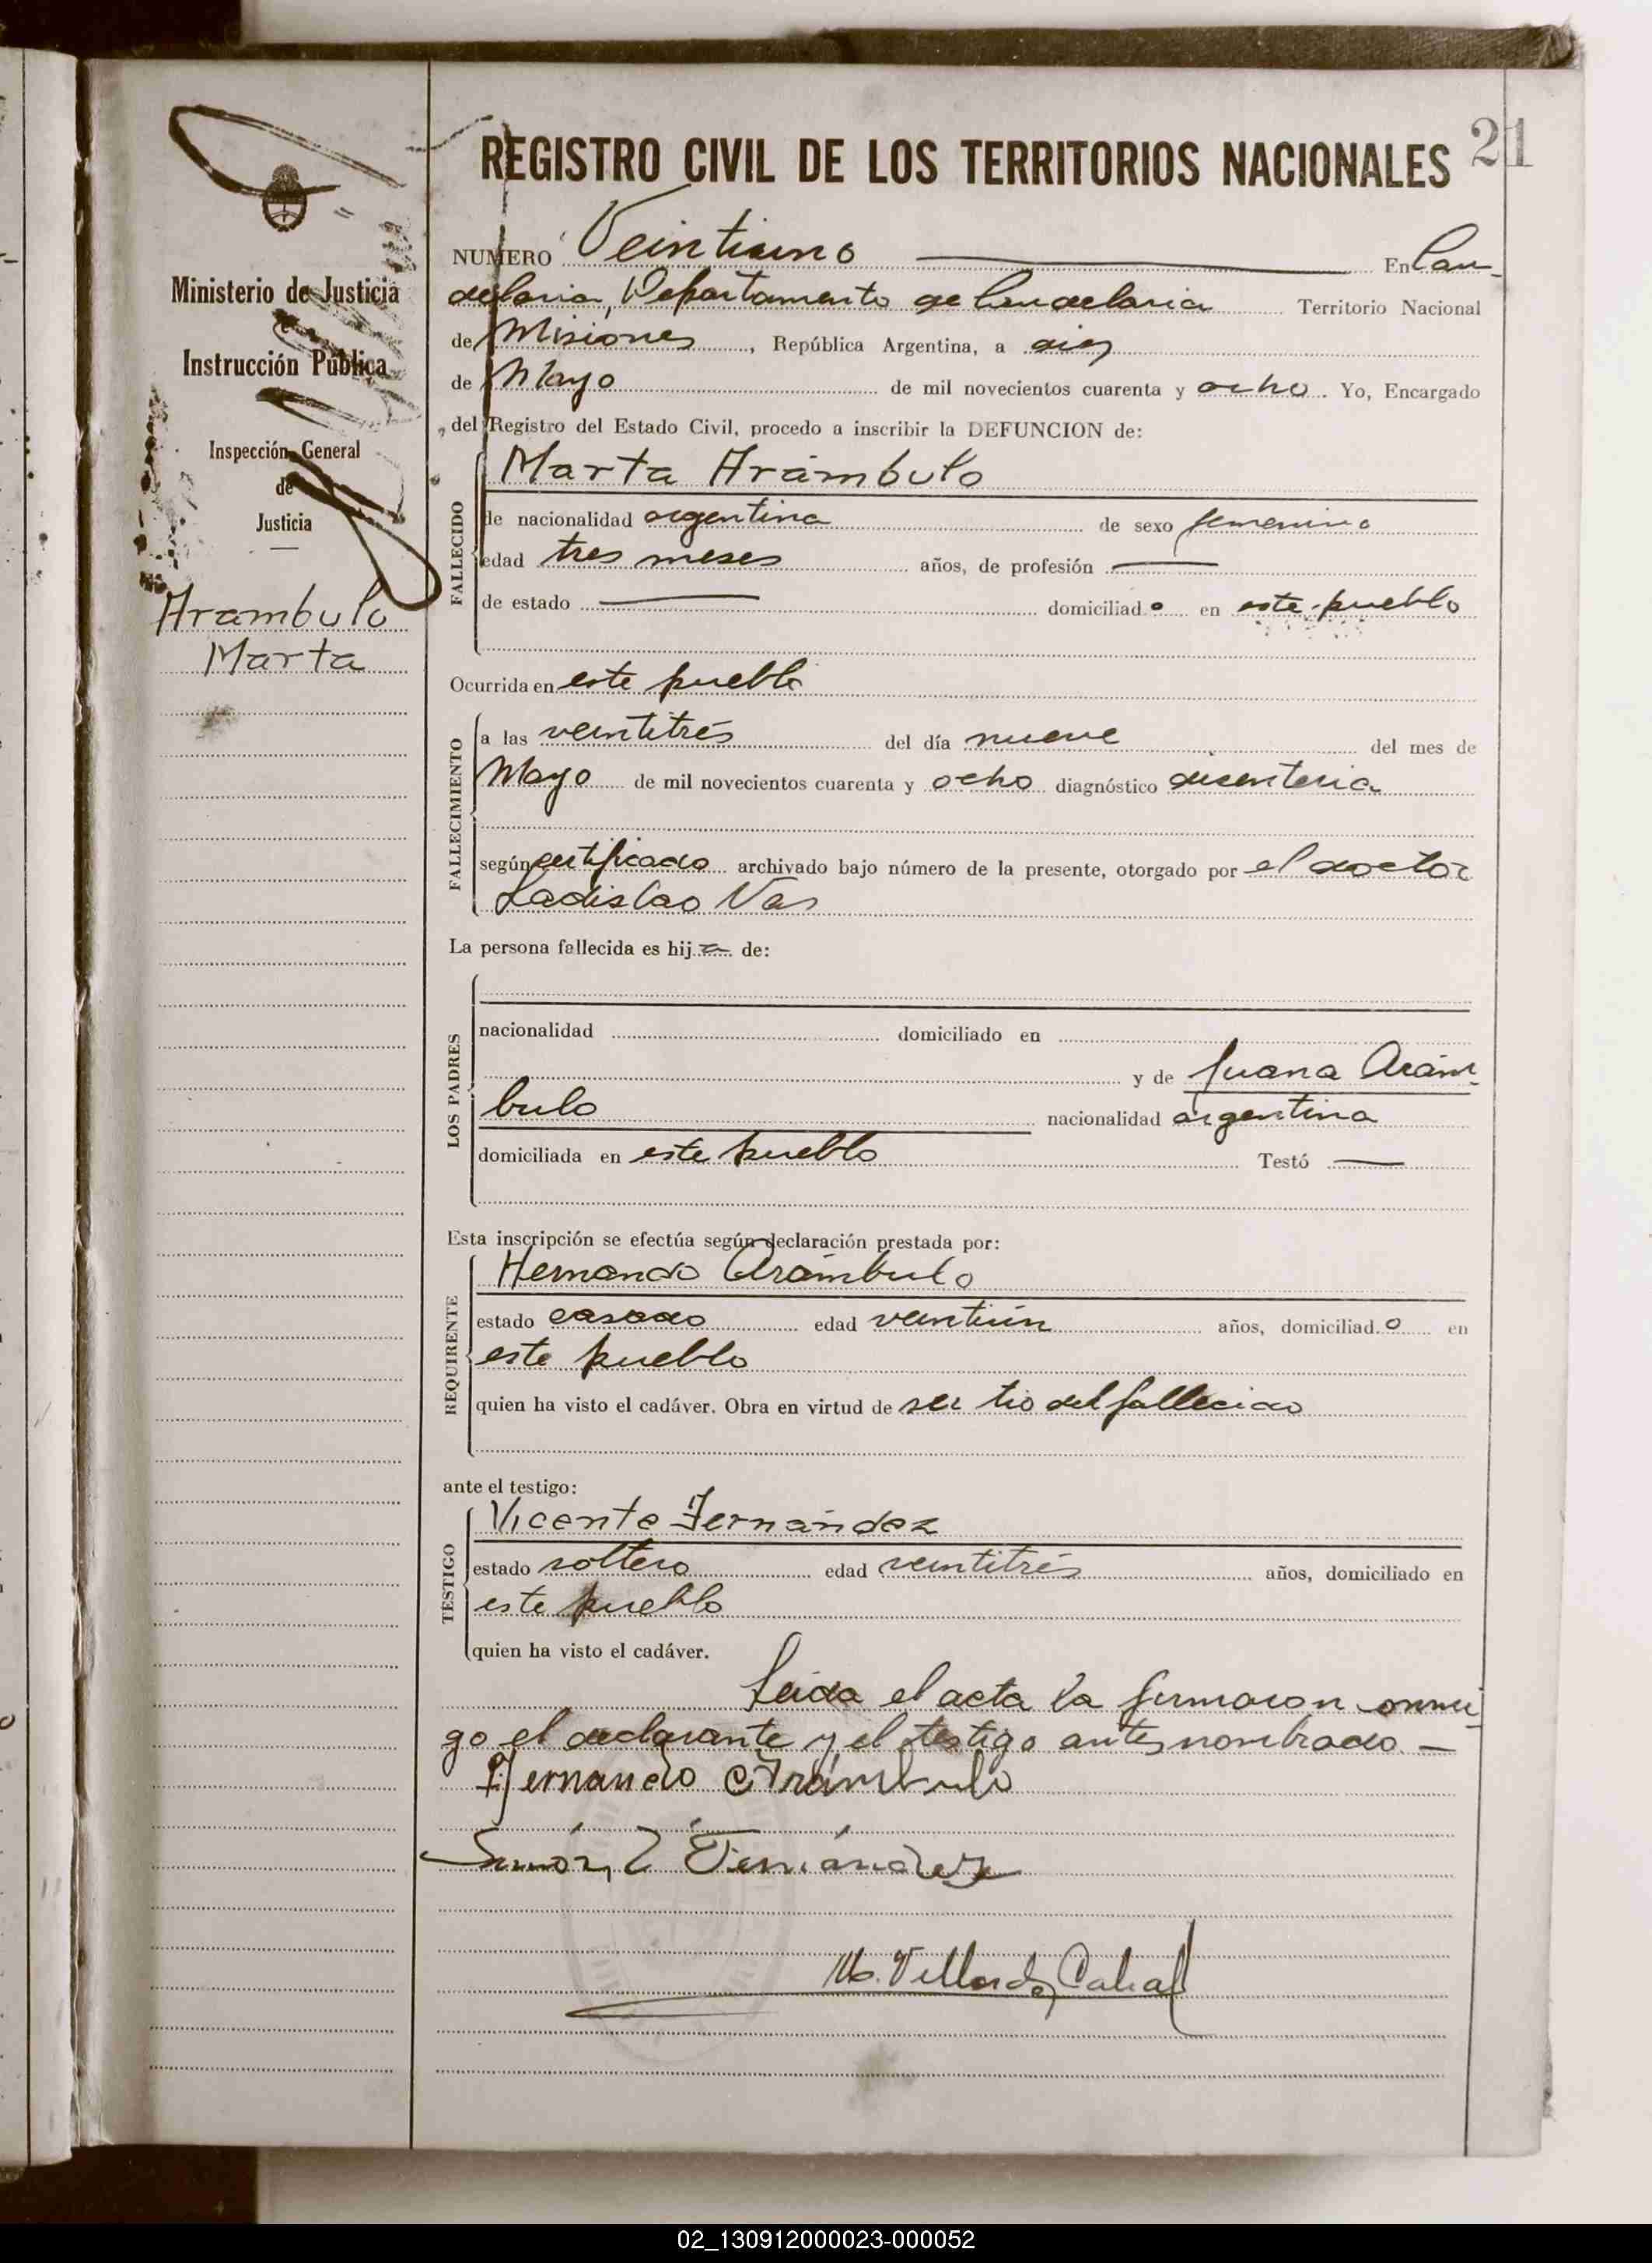 21
REGISTRO CIVIL DE LOS TERRITORIOS NACIONALES
Ministerio de Justicia
e
Instrucción Pública
Inspección General
de
Justicia
Arambulo
Marta
NUMERO Veintiuno En Can-
delaria, Departamento de Candelaria Territorio Nacional
de Misiones, República Argentina, a diez
de Mayo de mil novecientos cuarenta y ocho. Yo, Encargado
del Registro del Estado Civil, procedo a inscribir la DEFUNCION de:
FALLECIDO
Marta Arámbulo
de nacionalidad argentina de sexo femenino
edad tres meses años, de profesión —
de estado — domiciliado en este pueblo
Ocurrida en este pueblo
FALLECIMIENTO
a las veintitrés del día nueve del mes de
Mayo de mil novecientos cuarenta y ocho diagnóstico disenteria
según certificado archivado bajo número de la presente, otorgado por el doctor
Ladislao Vas
La persona fallecida es hija de:
LOS PADRES
nacionalidad domiciliado en
y de Juana Arám-
bulo nacionalidad argentina
domiciliada en este pueblo Testó —
Esta inscripción se efectúa según declaración prestada por:
REQUIRENTE
Hernando Arámbulo
estado casado edad veintiún años, domiciliado en
este pueblo
quien ha visto el cadáver. Obra en virtud de ser tio del fallecido
ante el testigo:
TESTIGO
Vicente Fernández
estado soltero edad veintitrés años, domiciliado en
este pueblo
quien ha visto el cadáver.
Leida el acta la firmaron conmi-
go el declarante y el testigo antes nombrado. —
Hernando Arámbulo
Fernández
M. Cabral
02_130912000023-000052